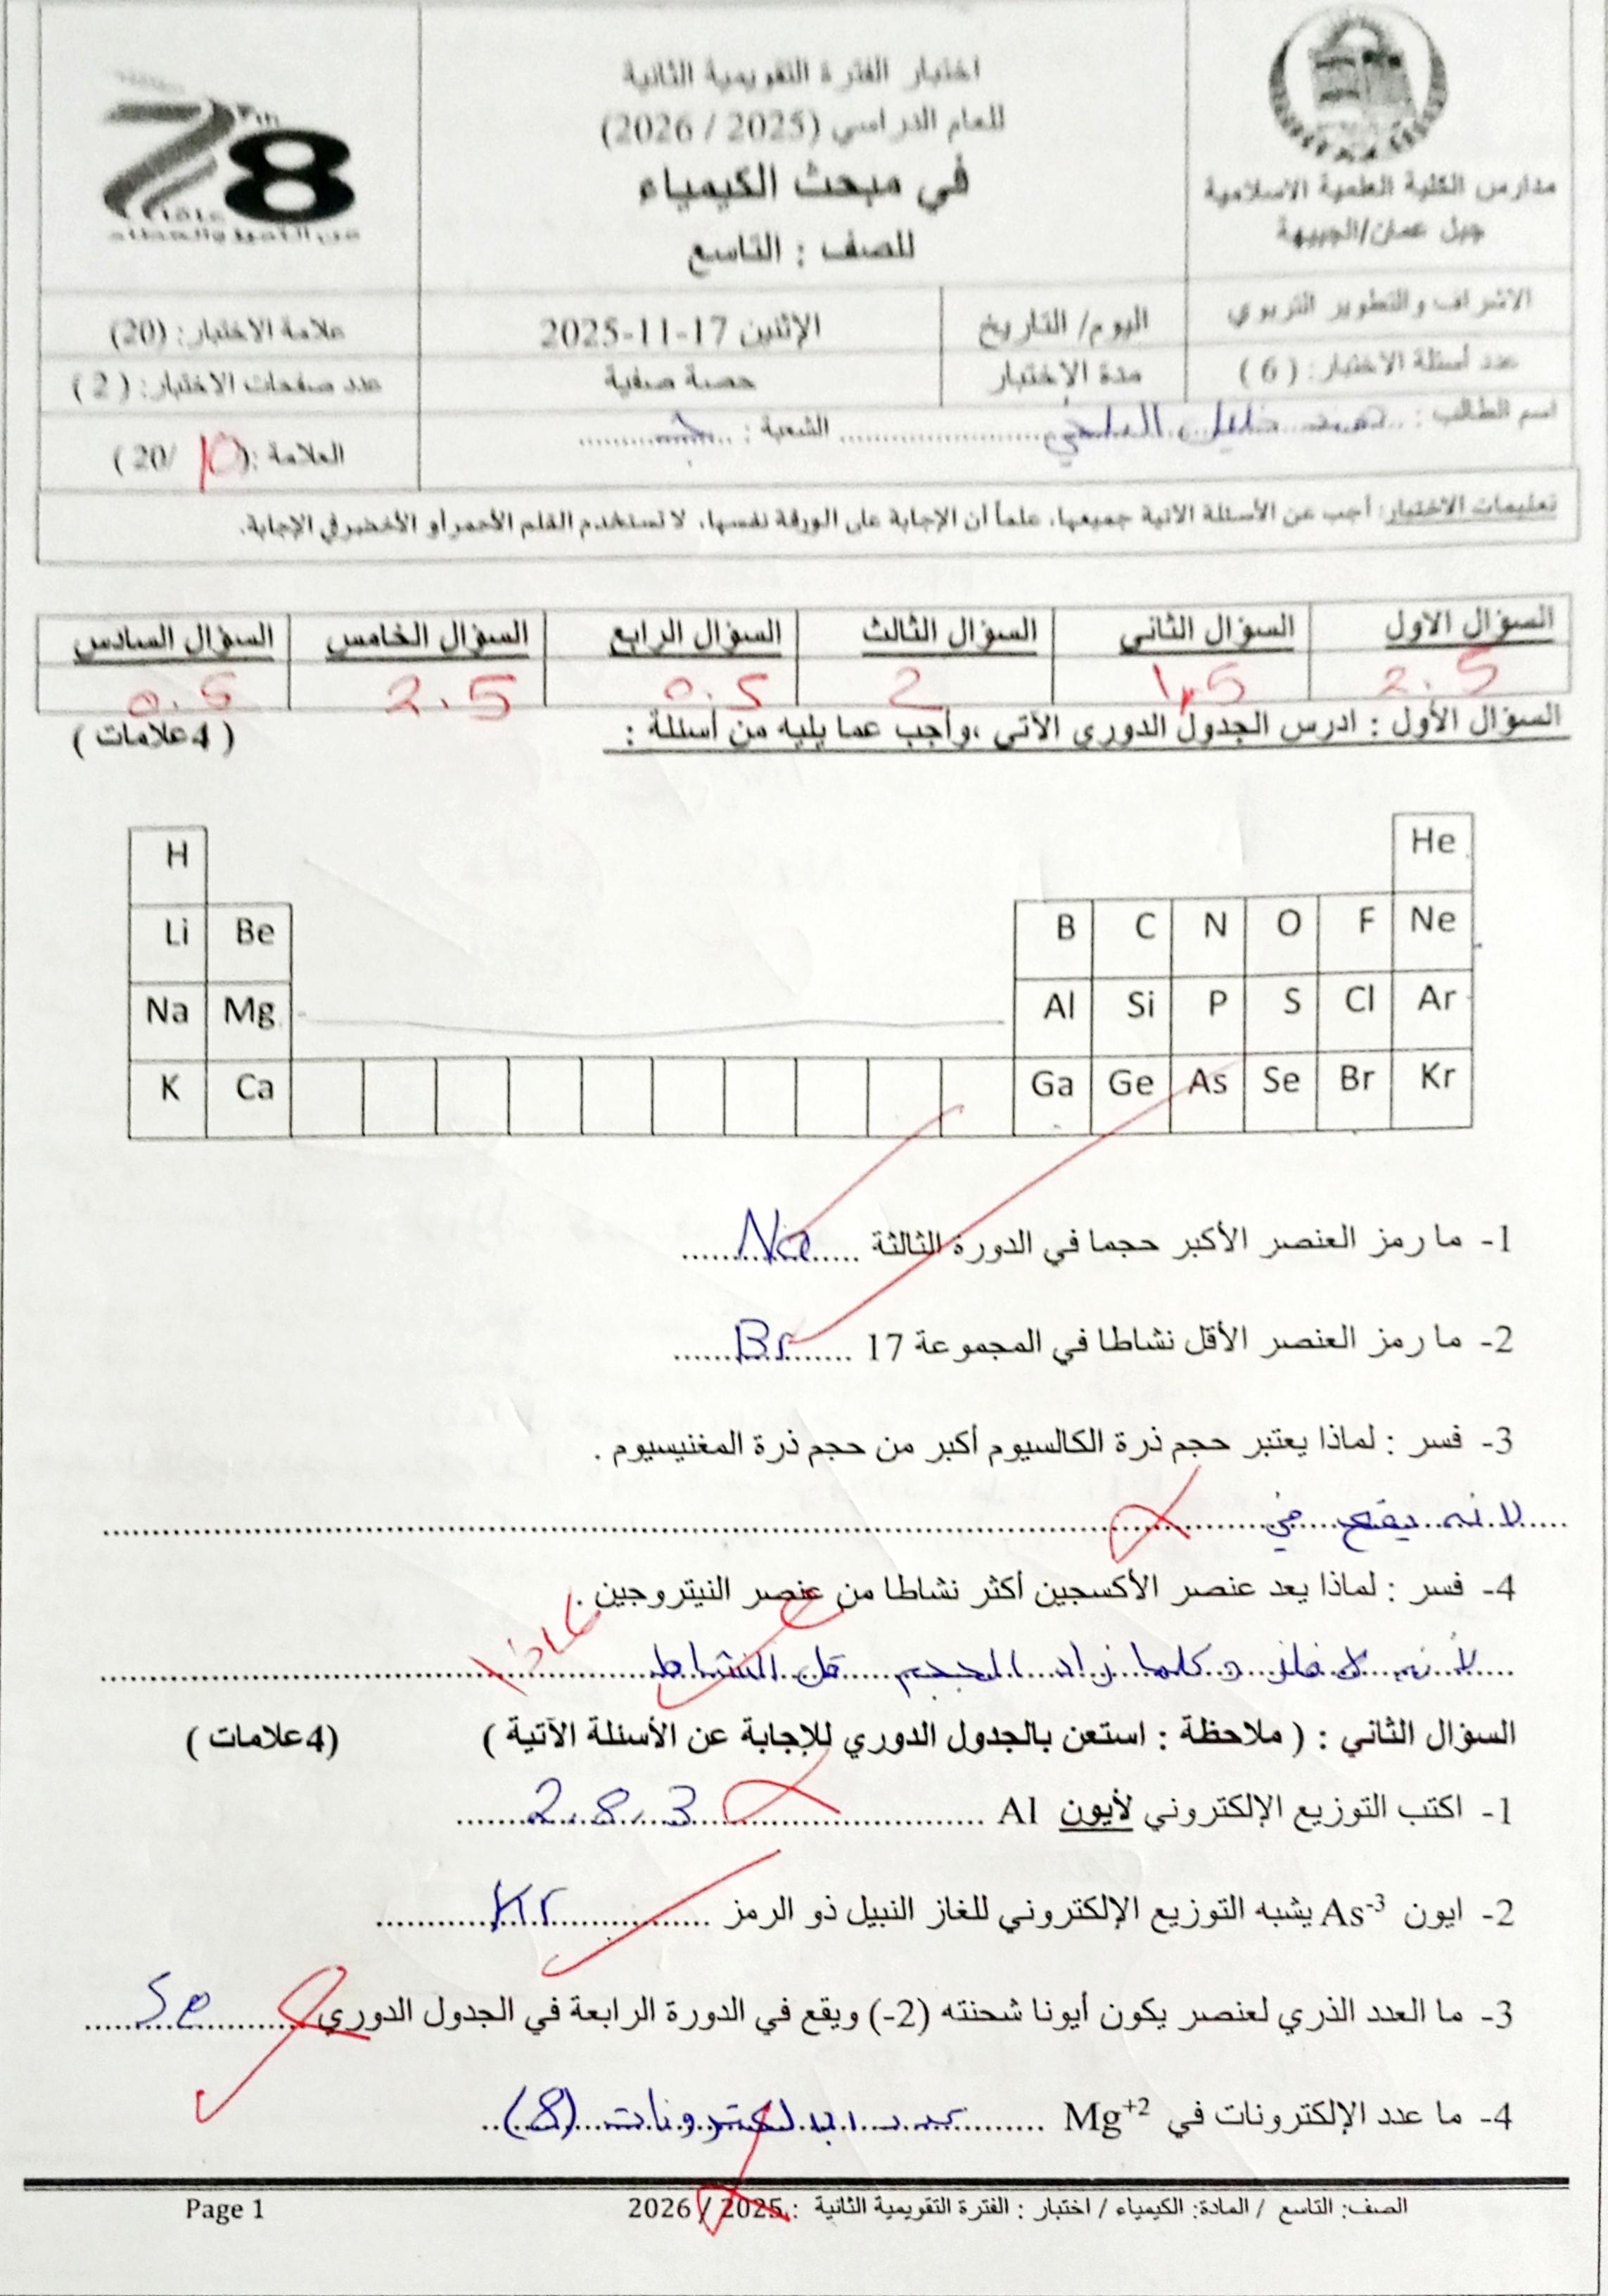 اختبار الفترة التقويمية الثانية
للعام الدراسي (2025 / 2026)
في مبحث الكيمياء
للصف : التاسع
مدارس الكلية العلمية الاسلامية
جبل عمان/الجبيهة
78
الاشراف والتطوير التربوي
اليوم/ التاريخ
الإثنين 17-11-2025
علامة الاختبار: (20)
عدد أسئلة الاختبار: ( 6 )
مدة الإختبار
حصة صفية
عدد صفحات الاختبار: ( 2 )
اسم الطالب : خليل الشعبة :
العلامة :( 10 /20 )
تعليمات الاختبار: أجب عن الأسئلة الآتية جميعها، علماً أن الإجابة على الورقة نفسها، لا تستخدم القلم الأحمر أو الأخضر في الإجابة.
السؤال الاول السؤال الثاني السؤال الثالث السؤال الرابع السؤال الخامس السؤال السادس
2.5 1.5 2 0.5 2.5 0.5
السؤال الأول : ادرس الجدول الدوري الآتي ،وأجب عما يليه من أسئلة : ( 4علامات )
H He
Li Be B C N O F Ne
Na Mg Al Si P S Cl Ar
K Ca Ga Ge As Se Br Kr
1- ما رمز العنصر الأكبر حجما في الدورة الثالثة Na
2- ما رمز العنصر الأقل نشاطا في المجموعة 17 Br
3- فسر : لماذا يعتبر حجم ذرة الكالسيوم أكبر من حجم ذرة المغنيسيوم .
لانه يقع في
4- فسر : لماذا يعد عنصر الأكسجين أكثر نشاطا من عنصر النيتروجين .
لأنه لا فلز و كلما زاد الحجم قل النشاط لماذا
السؤال الثاني : ( ملاحظة : استعن بالجدول الدوري للإجابة عن الأسئلة الآتية ) (4علامات )
1- اكتب التوزيع الإلكتروني لأيون Al 2.8.3
2- ايون As-3 يشبه التوزيع الإلكتروني للغاز النبيل ذو الرمز Kr
3- ما العدد الذري لعنصر يكون أيونا شحنته (2-) ويقع في الدورة الرابعة في الجدول الدوري Se
4- ما عدد الإلكترونات في Mg+2 (8)
الصف: التاسع / المادة: الكيمياء / اختبار : الفترة التقويمية الثانية : 2025 / 2026
Page 1